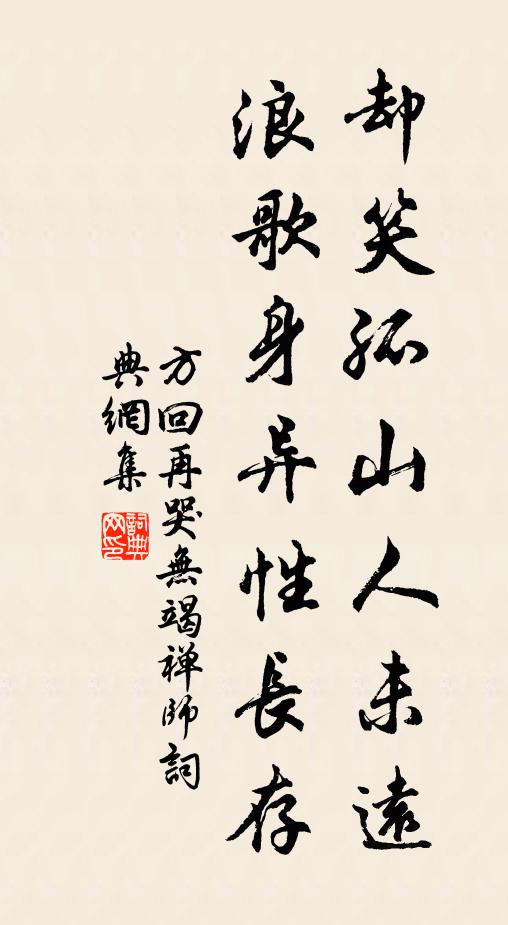 却笑孤山人未遠
浪歌身异性長存
方回再哭無竭禅師詞
典網集
詞典网印